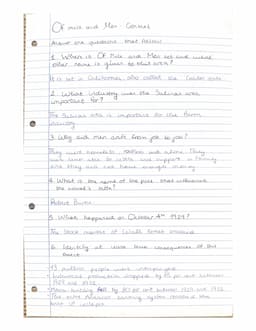 Of mice and Men - Context
Answer the questions that follow
1. Where is Of Mice and Men set and what
other name is given to that area?
It is set in California, also called the Golden state
2. What industry was the Salinas area
important for?
The Salinas area is important for the farm
industry
3. Why did men drift from job to job?
They were homeless, and alone. They
were able to settle and support a family
as they did not have enough money
4. What is the name of the poet that influenced
the novel's title?
Robert Burns
5. What happened on October 4th 1929?
The stock market of Wall Street crashed
6. Identify at least three consequences of this
event
13 million people were unemployed
Industrial production dropped by 45 per cent between
1929 and 1932
House building fell by 80 per cent between 1929 and 1932
The entire American banking system reached the
brink of collapse